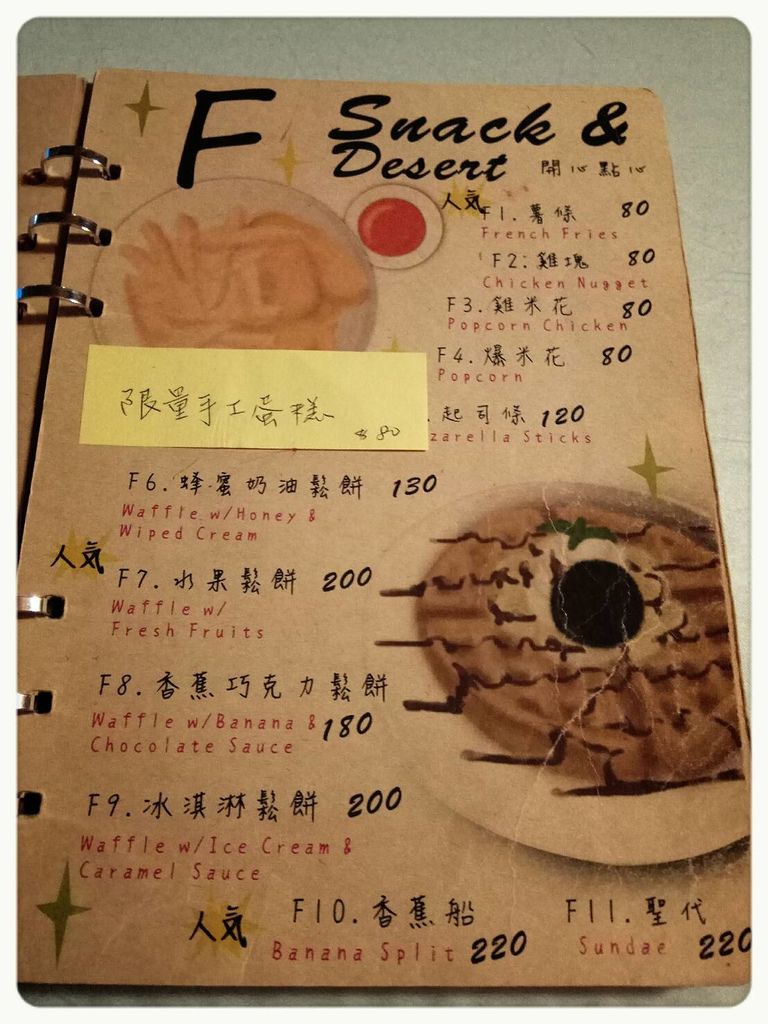 F
Snack &
Desert 開心點心
人気 F1. 薯條 80
French Fries
F2. 雞塊 80
Chicken Nugget
F3. 雞米花 80
Popcorn Chicken
F4. 爆米花 80
Popcorn
限量手工蛋糕 $80
. 起司條 120
zarella Sticks
F6. 蜂蜜奶油鬆餅 130
Waffle w/Honey &
Wiped Cream
人気
F7. 水果鬆餅 200
Waffle w/
Fresh Fruits
F8. 香蕉巧克力鬆餅
Waffle w/Banana & 180
Chocolate Sauce
F9. 冰淇淋鬆餅 200
Waffle w/Ice Cream &
Caramel Sauce
人気 F10. 香蕉船
Banana Split 220
F11. 聖代
Sundae 220